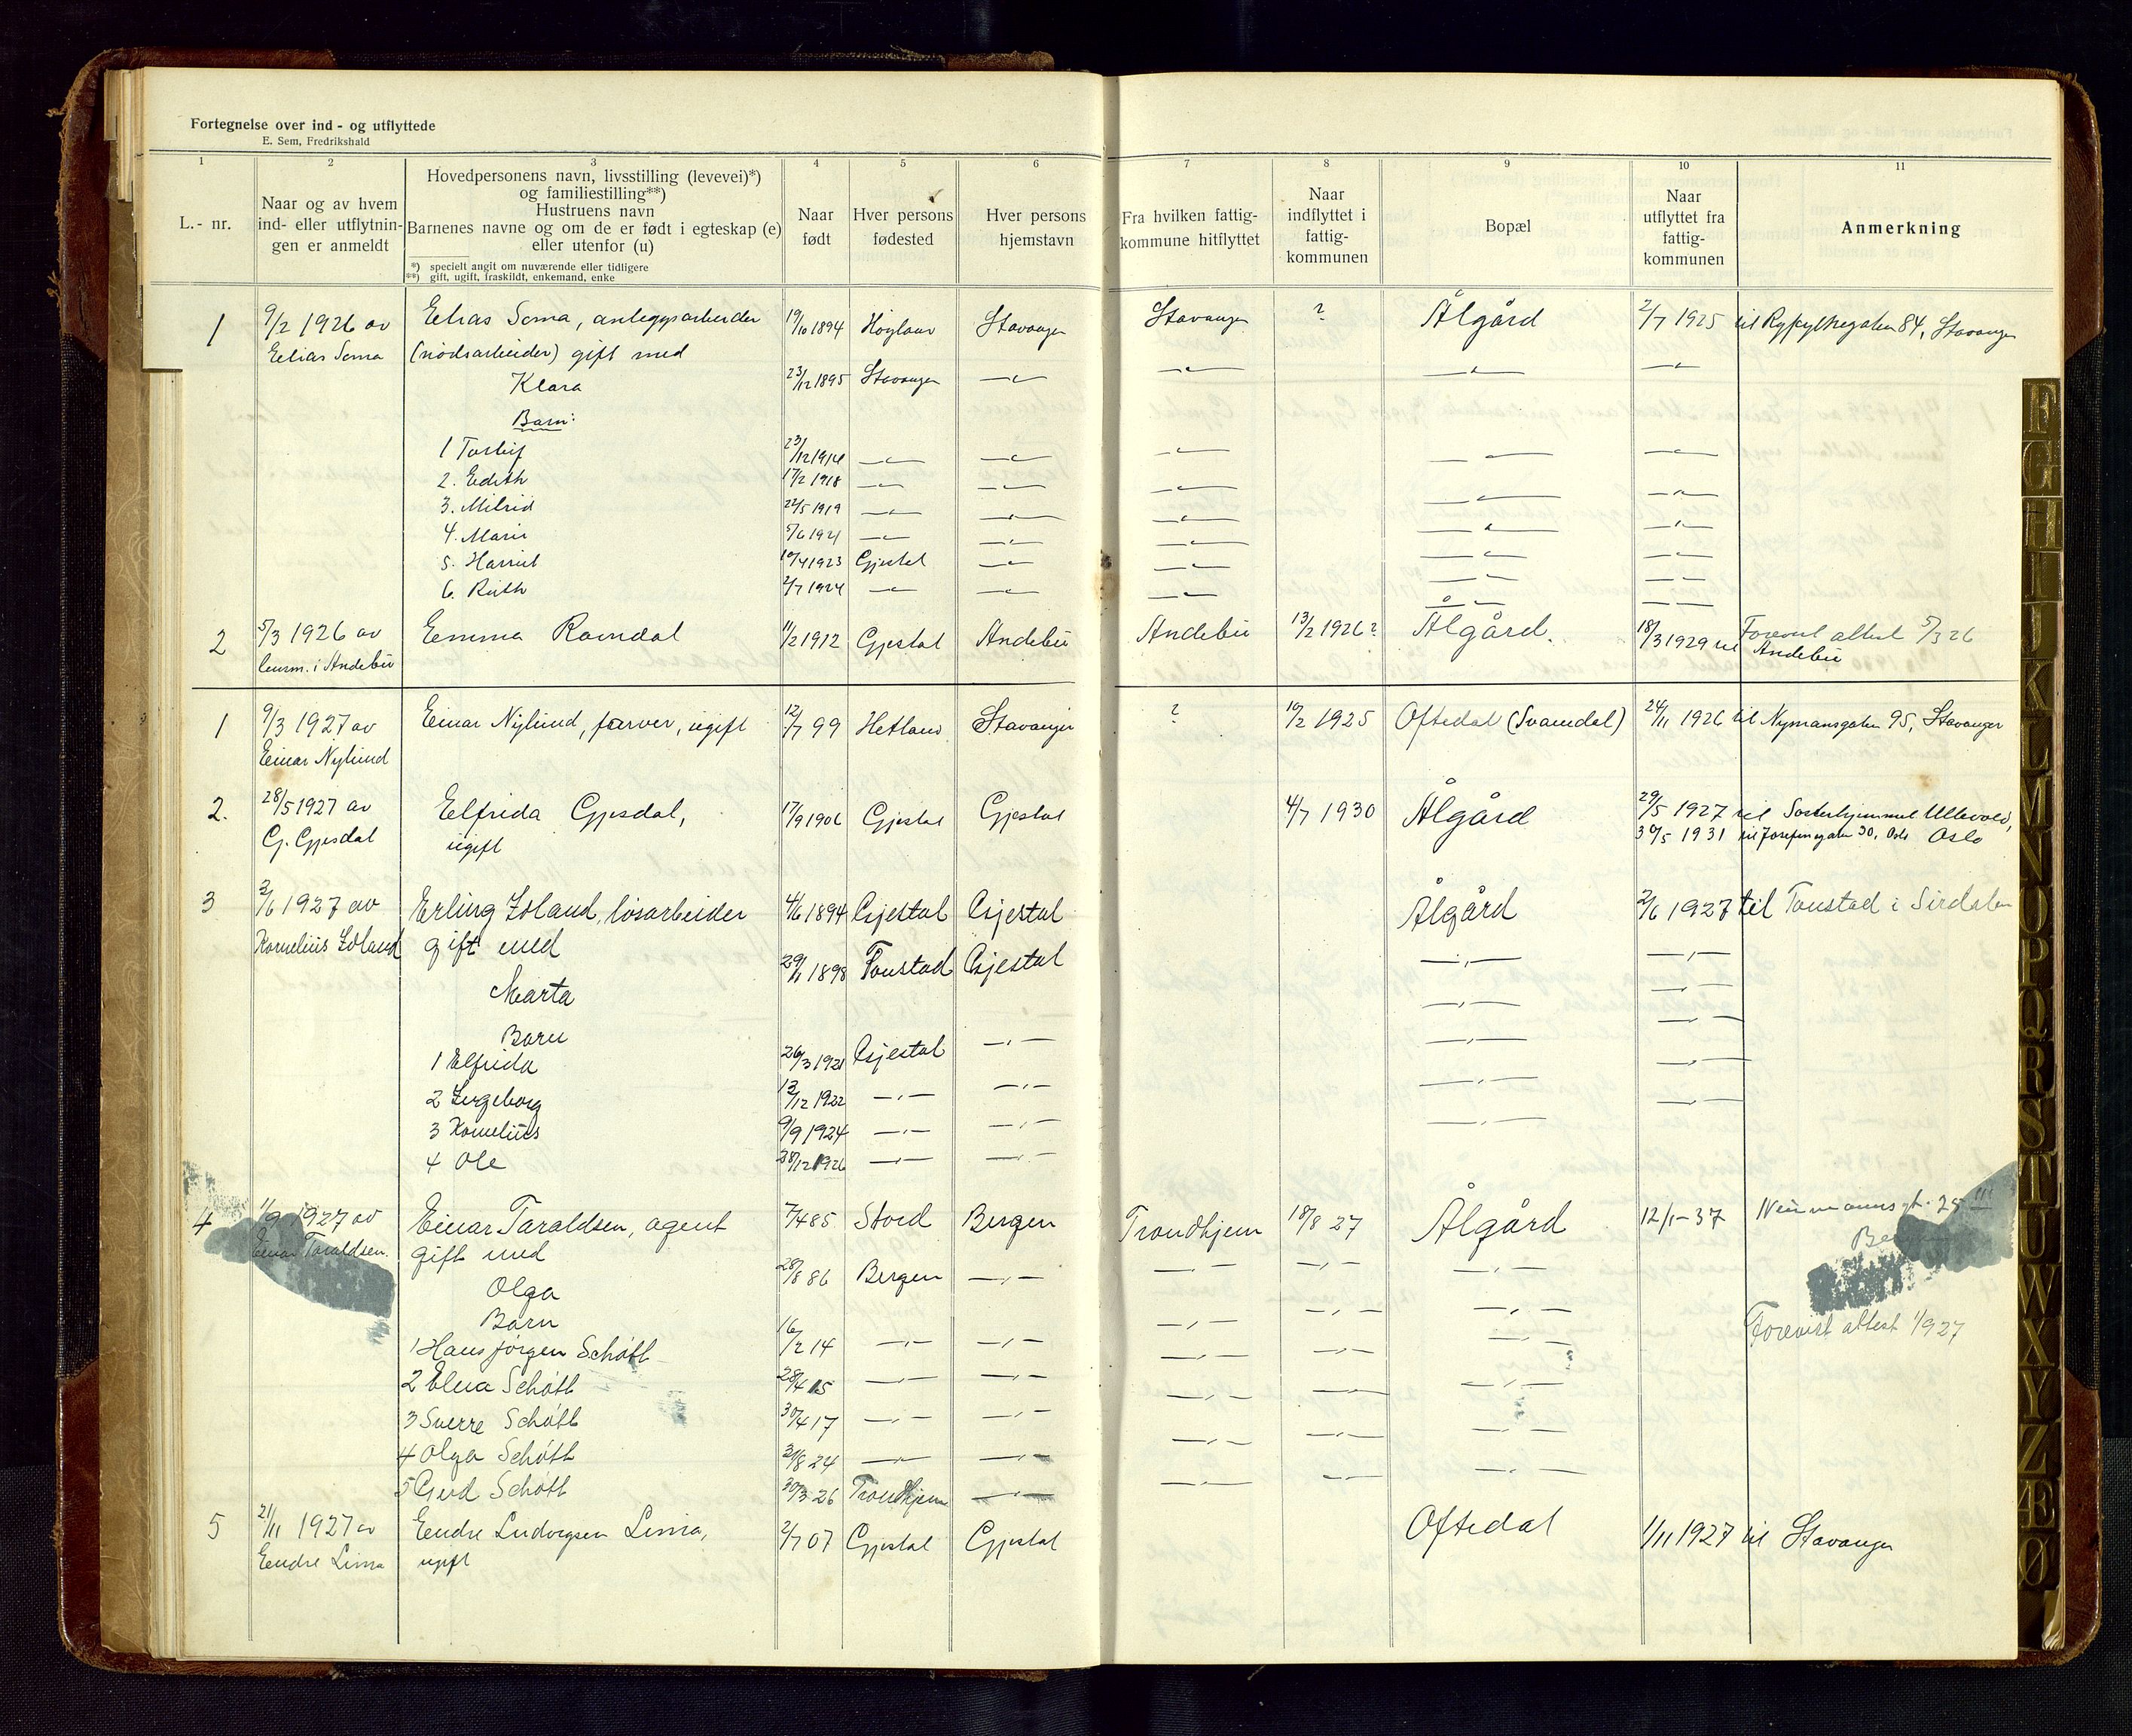 Fortegnelse over ind - og utflyttede
E. Sem, Fredrikshald
1 2 3 4 5 6 7 8 9 10 11
L.- nr.
Naar og av hvem
ind- eller utflytnin-
gen er anmeldt
Hovedpersonens navn, livsstilling (levevei)*)
og familiestilling**)
Hustruens navn
Barnenes navne og om de er født i egteskap (e)
eller utenfor (u)
*) specielt angit om nuværende eller tidligere
**) gift, ugift, fraskildt, enkemand, enke
Naar
født
Hver persons
fødested
Hver persons
hjemstavn
Fra hvilken fattig-
kommune hitflyttet
Naar
indflyttet i
fattig-
kommunen
Bopæl
Naar
utflyttet fra
fattig-
kommunen
Anmerkning
1 9/2 1926 av Elias Soma, anleggsarbeider 19/10 1894 Høyland Stavanger Stavanger ? Ålgård 2/7 1925 til 84, Stavanger
Elias Soma (nødsarbeider) gift med
Klara 23/12 1895 Stavanger
Barn:
1 Torleif 23/12 1914
2. Edith 17/2 1918
3. Milrid 22/5 1919
4. Marie 5/6 1921
5. Harriet 19/4 1923 Gjestal
6. Ruth 2/7 1924
2 5/3 1926 av Emma Ramdal 11/2 1912 Gjestal Andebu Andebu 13/2 1926? Ålgård. 18/3 1929 til Forevist attest 5/3 26
lensm. i Andebu Andebu
1 9/3 1927 av Einar Nylund, farver, ugift 12/7 99 Hetland Stavanger ? 19/2 1925 Oftedal (Svamdal) 24/11 1926 til Nymansgaten 95, Stavanger
Einar Nylund
2. 28/5 1927 av Elfrida Gjesdal, 17/9 1906 Gjestal Gjestal 4/7 1930 Ålgård 29/5 1927 til Søsterhjemmet Ullevold,
G. Gjesdal ugift 30/5 1931 til Josefinegaten 30, Oslo Oslo
3 2/6 1927 av Erling Idland, løsarbeider 4/6 1894 Gjestal Gjestal Ålgård 2/6 1927 til Tonstad i Sirdalen
Kornelius Idland gift med
Marta 29/11 1898 Tonstad Gjestal
Barn
1 Elfrida 26/3 1921 Gjestal
2 Ingeborg 13/12 1922
3 Kornelius 9/9 1924
4 Ole 28/12 1926
4 1/9 1927 av Einar Taraldsen, agent 7/4 85 Stord Bergen Trondhjem 18/8 27 Ålgård 12/1-37 Neumannsgt. 25 III
Einar Taraldsen. gift med
Olga 28/8 86 Bergen
Barn
1 Hans Jørgen Schøtt 16/2 14
2 Elna Schøtt 28/4 15
Forevist attest 1/9 27
3 Sverre Schøtt 30/4 17
4 Olga Schøtt 31/8 24
5 Gerd Schøtt 30/3 26 Trondhjem
5 21/11 1927 av Endre Ludvigsen Lima, 2/7 07 Gjestal Gjestal Oftedal 1/11 1927 til Stavanger
Endre Lima ugift
F
G
H
I
J
K
L
M
N
O
P
Q
R
S
T
U
W
X
Y
Z
Æ
Ø